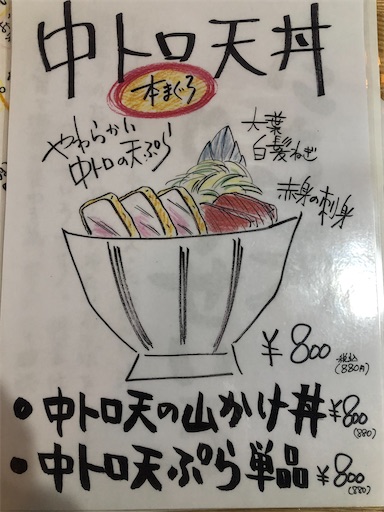 中トロ天丼
本まぐろ
やわらかい
中トロの天ぷら
大葉
白髪ねぎ
赤身の刺身
¥800 税込
(880円)
• 中トロ天の山かけ丼 ¥800
(880)
• 中トロ天ぷら単品 ¥800
(880)